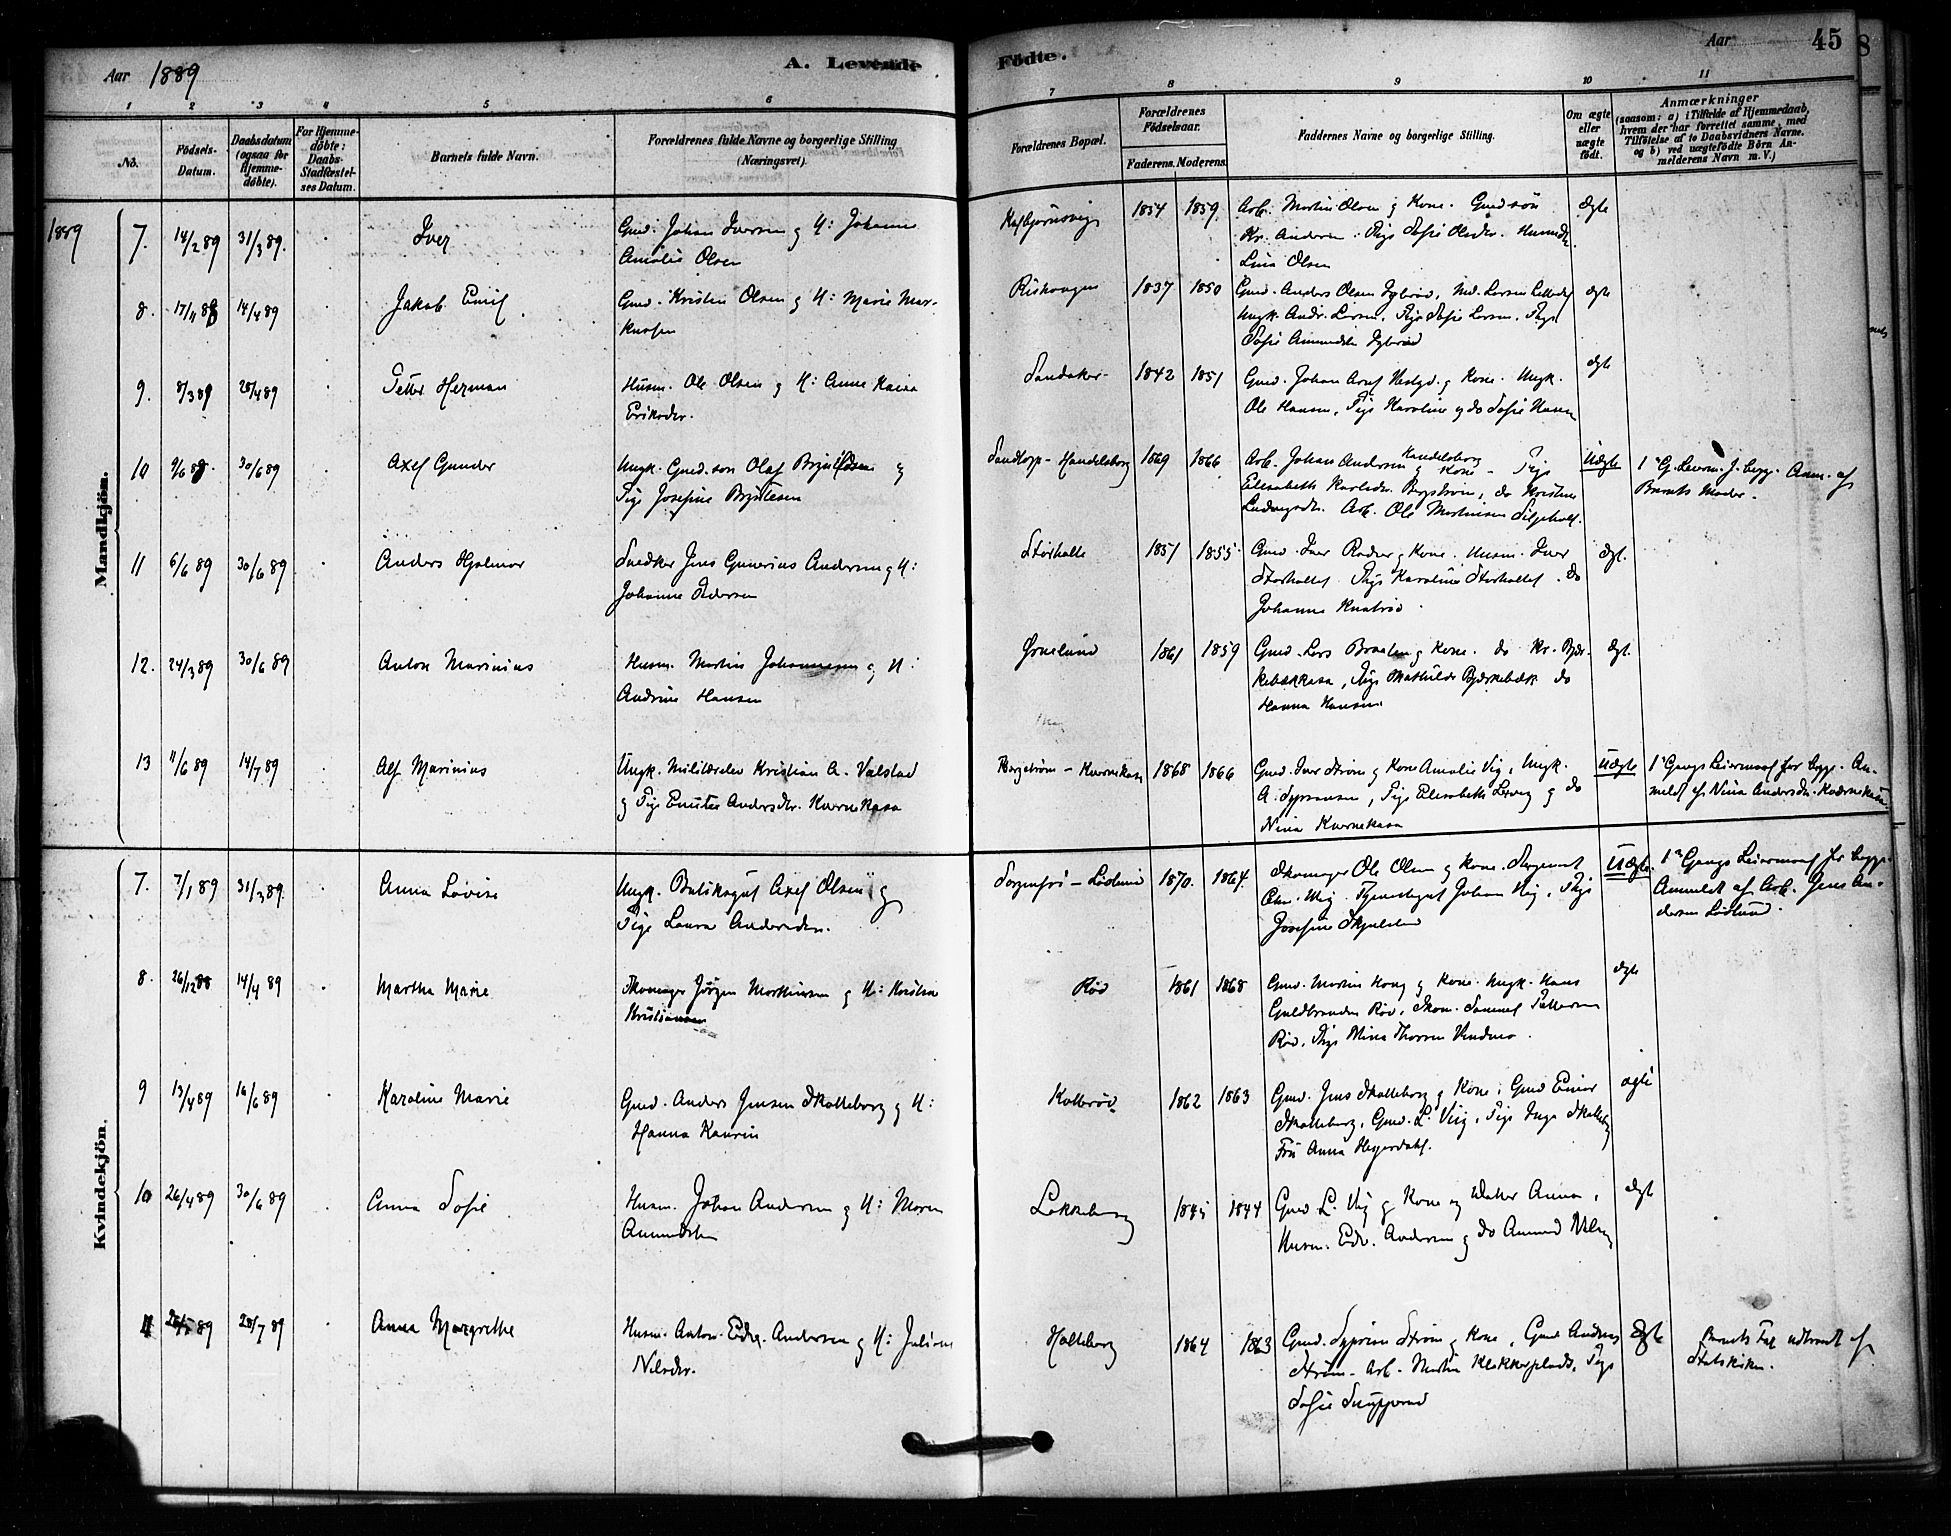 Aar 1889
A. Levende
Födte.
Aar
45
8
1
2
3
4
5
6
7
8
9
10
11
No.
Födsels-
Datum.
Daabsdatum
(ogsaa for
Hjemme-
döbte).
For Hjemme-
döbte:
Daabs-
Stadfæstel-
ses Datum.
Barnets fulde Navn.
Forældrenes fulde Navne og borgerlige Stilling
(Næringsvei).
Forældrenes Bopæl.
Forældrenes
Födselsaar.
Faderens. Moderens.
Faddernes Navne og borgerlige Stilling.
Om ægte
eller
uægte
födt.
Anmærkninger
(saasom: a) i Tilfælde af Hjemmedaab,
hvem der har forrettet samme, med
Tilföielse af to Daabsvidners Navne.
og b) ved uægtefödte Börn An-
melderens Navn m. V.)
1889
Mandkjön.
7. 14/2 89 31/3 89. Iver
Gmd. Johan Iversen og H: Johanne
Amalie Olsen
1854 1859
Arb. Martin Olsen og Kone. Gmdsön
Kr. Andersen. Pige Sofie Olsdr.
Lina Olsen
ægte
8. 17/11 88 14/4 89 Jakob Emil
Gmd. Kristian Olsen og H: Marie Mar-
kusen
1837 1850
Gmd. Anders Olsen
Ungk. Andr. Larsen. Pige Sofie Larsen. Pige
Sofie
ægte
9. 8/3 89 28/4 89 Petter Herman
Husm. Ole Olsen og H: Anne Karine
Eriksdr.
Sandaker 1842 1851
Gmd. Johan og Kone. Ungk.
Ole Hansen, Pige Karoline og do Sofie Hansen
ægte
10 9/6 89 30/6 89 Axel Gunder
Ungk. Gmd.sön Olaf og
Pige Josefine
Sandtorp - Handelsborg 1869 1866
Arb. Johan Andersen Handelsborg og Kone - Pige
Elisabeth Karlsdr. Bergström, do Kristine
Ludvigsdr. Arb. Ole Martinsen
Uægte
1ste G. Leierm. f. begge. Anm. af
Barnets Moder.
11 6/6 89 30/6 89 Anders Hjalmar
Snedker Jens Gunerius Andersen og H:
Johanne Pedersen
1851 1855
Gmd. Iver og Kone. Husm. Iver
Pige Karoline do
Johanne
ægt.
12. 24/3 89 30/6 89 Anton Marinius
Husm. Martin Johannesen og H:
Andrine Hansen
Grenlund 1861 1859
Gmd. Lars Braaten og Kone. do Kr. Bjer-
kebækkasa, Pige Mathilde Bjerkebæk do
Hanna Hansen
ægt.
13 11/6 89 14/7 89 Alf Marinius
Ungk. Militærelev Kristian A. Valstad
og Pige Emilie Andersdtr. Kvernekasa
Bergström - Kvernekasa 1868 1866
Gmd. Iver Ström og Kone Amalie Vig, Ungk.
A. Syversen, Pige Elisabeth og do
Nina Kvernekasa
Uægte
1ste Gangs Leiermaal for begge. An-
meldt af Nina Andersdtr. Kvernekasa.
Kvindekjön.
7. 7/1 89 31/3 89. Anna Lovise
Ungk. Axel Olsen og
Pige Laura Andersdtr.
Sorgenfri - Lödlund 1870. 1864.
Skomager Ole Olsen og Kone. Sergeant
Chr. Vig. Johan Vig, Pige
Josefine
Uægte.
1ste Gangs Leiermaal for begge.
Anmeldt af Arb. Jens An-
dersen Lödlund.
8. 26/12 88 14/4 89 Martha Marie
Skomager Jörgen Marthinsen og H: Kristine
Kristiansen
Röd 1861 1868
Gmd. Martin og Kone. Ungk. Hans
Guldbrandsen Röd, Skom. Samuel Pettersen
Röd, Pige Mina Thorsen
ægte
9 13/4 89 16/6 89 Karoline Marie
Gmd. Anders Jensen Skalleberg og H:
Hanna Kaurin
Kolleröd 1862 1863
Gmd. Jens Skalleberg og Kone, Gmd. Einar
Skalleberg, Gmd. L. Vig, Pige Inga Skalleberg
Frö. Anna Heyerdahl.
ægte
10 26/4 89 30/6 89 Anna Sofie
Husm. Johan Andersen og H: Maren
Amundsen
Lökkeberg 1845 1844
Gmd. L. Vig og Kone og Datter Anna,
Husm. Edv. Andersen og do Amund
ægt
11 28/5 89 28/7 89 Anna Margrethe
Husm. Anton Edv. Andersen og H: Juliane
Nilsdtr.
Holteberg 1864 1863
Gmd. Syvrin Ström og Kone, Gmd. Andreas
Ström. Arb. Martin Klokkerplads, Pige
Sofie
Ægte
Barnets Far udtraadt af
Statskirken.